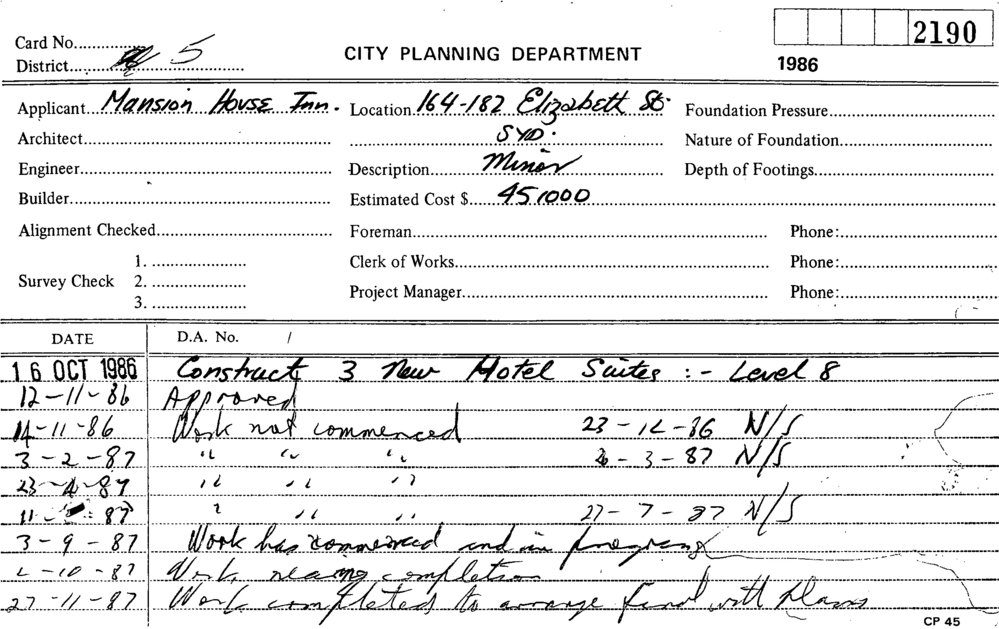 2190
Card No.
District 5
CITY PLANNING DEPARTMENT
1986
Applicant Mansion House Inn. Location 164-182 Elizabeth St. Foundation Pressure
Architect SYD. Nature of Foundation
Engineer Description Minor Depth of Footings
Builder Estimated Cost $ 45,000
Alignment Checked Foreman Phone:
1. Clerk of Works Phone:
Survey Check 2.
3. Project Manager Phone:
DATE D.A. No. /
16 OCT 1986 Construct 3 New Hotel Suites :- Level 8
12-11-86 Approved
14-11-86 Work not commenced 23-12-86 N/S
3-2-87 " " " -3-87 N/S
23-4-87 " " "
11- 87 " " " 27-7-87 N/S
3-9-87 Work has commenced and in progress
2-10-87 Work nearing completion
27-11-87 Work completed to arrange final with plans
CP 45